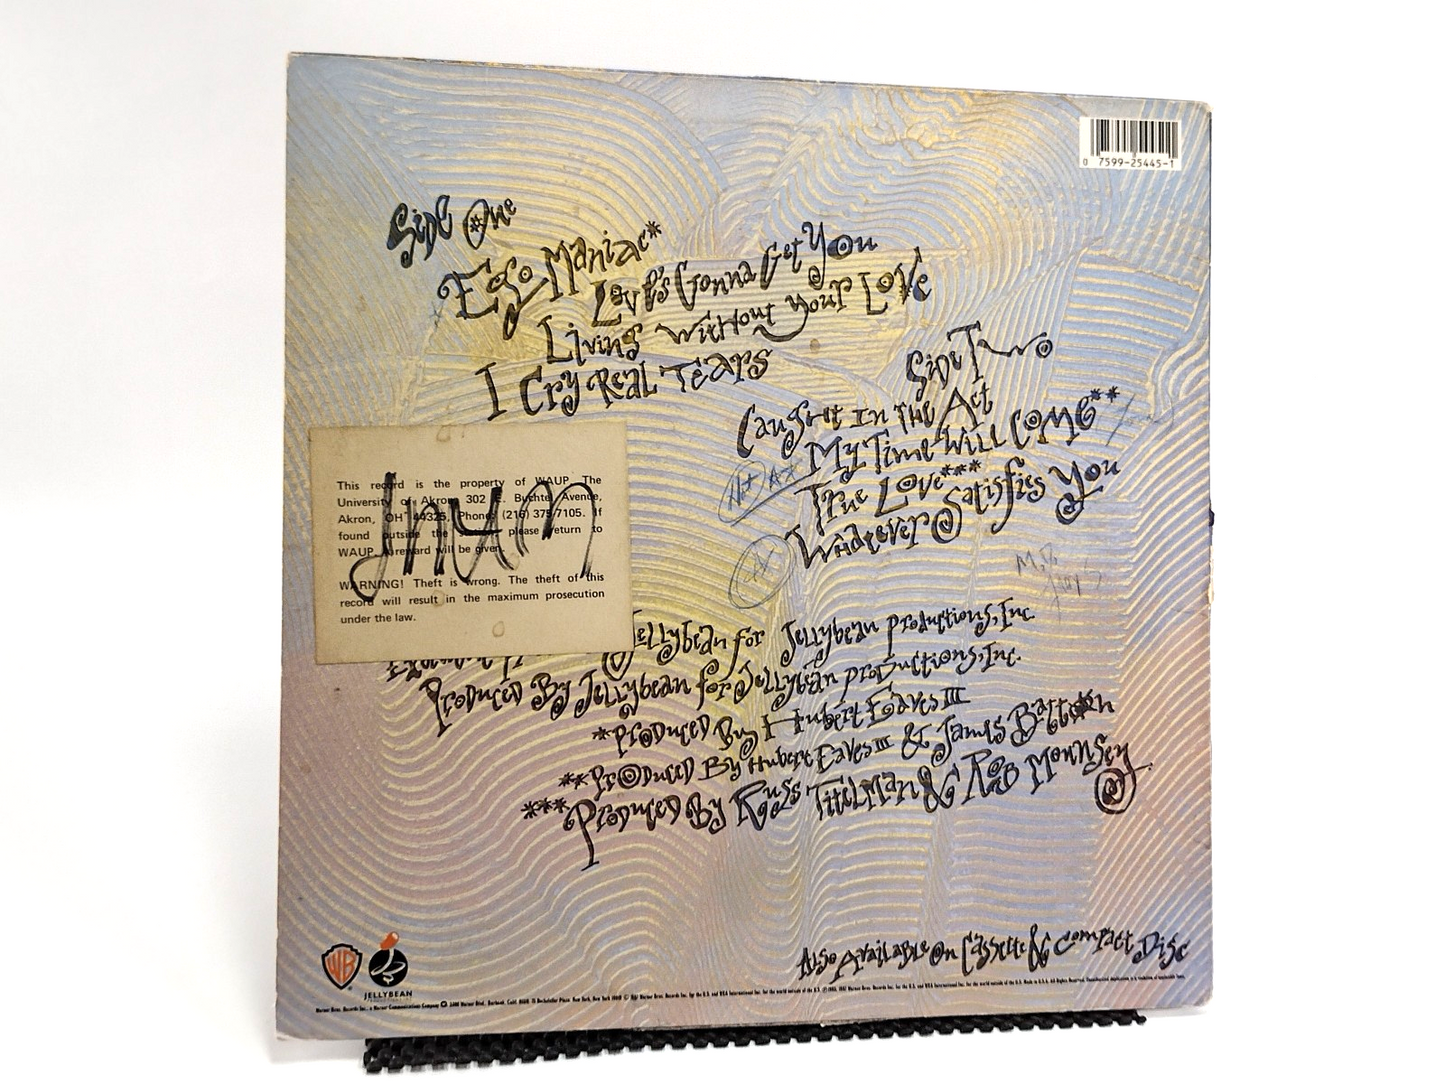 0 7599-25445-1
Side One
Ego Maniac*
Love's Gonna Get You
Living Without Your Love
I Cry Real Tears
Side Two
Caught In The Act
My Time Will Come**
True Love***
Whatever Satisfies You
This record is the property of WAUP, The
University of Akron 302 E. Buchtel Avenue,
Akron, OH 44325. Phone (216) 375-7105. If
found outside the please return to
WAUP. A reward will be given.
WARNING! Theft is wrong. The theft of this
record will result in the maximum prosecution
under the law.
Jellybean for Jellybean Productions, Inc.
Produced By Jellybean for Jellybean Productions, Inc.
*Produced By Hubert Eaves III
**Produced By Hubert Eaves III & James Batton
***Produced By Russ Titelman & Rob Mounsey
Also Available On Cassette & Compact Disc
WB
JELLYBEAN